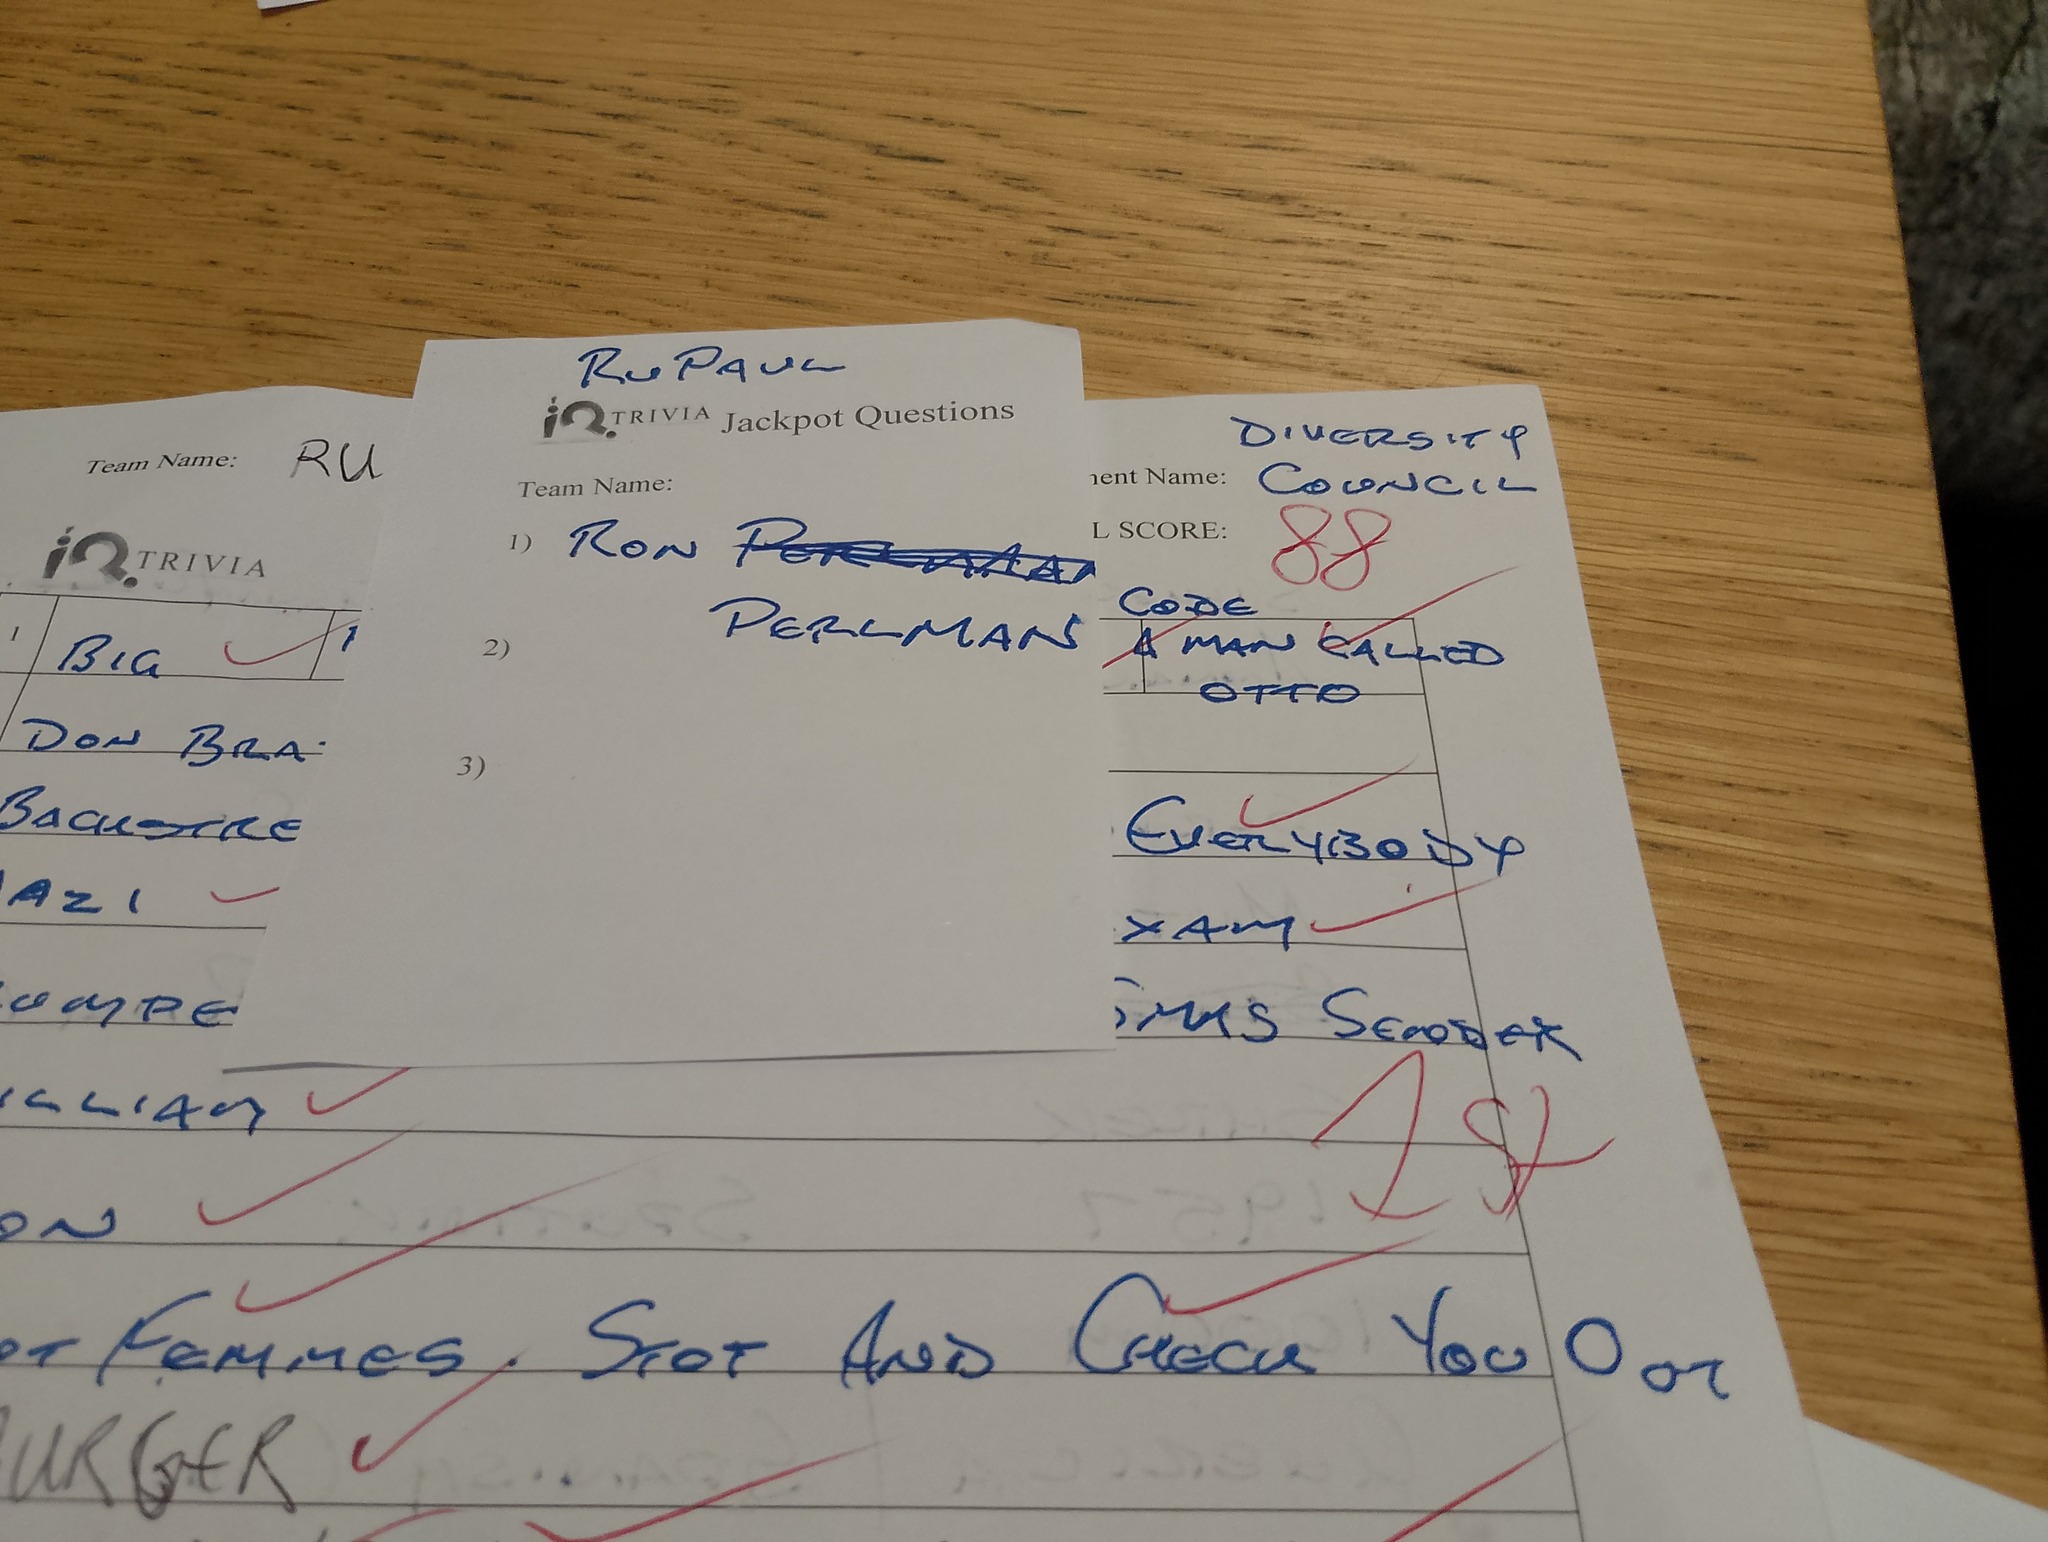 RuPAUL
iQ. TRIVIA Jackpot Questions
Team Name:
1) RON
PERLMAN
2)
3)
Team Name: RU
iQ. TRIVIA
1 BIG 1
DON BRA
AZI
UMPE
ILLIAM
ON
OT FEMMES. STOT AND CHECK YOU OOT
URGER
DIVERSITY
ent Name: COUNCIL
L SCORE: 88
CODE
A MAN CALLED
OTTO
EVERYBODY
XAM
1st